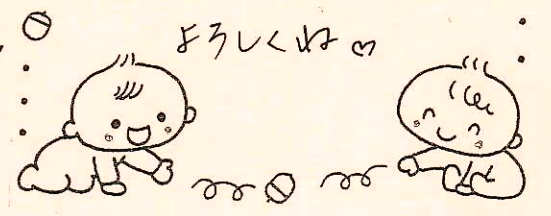 よろしくね♡